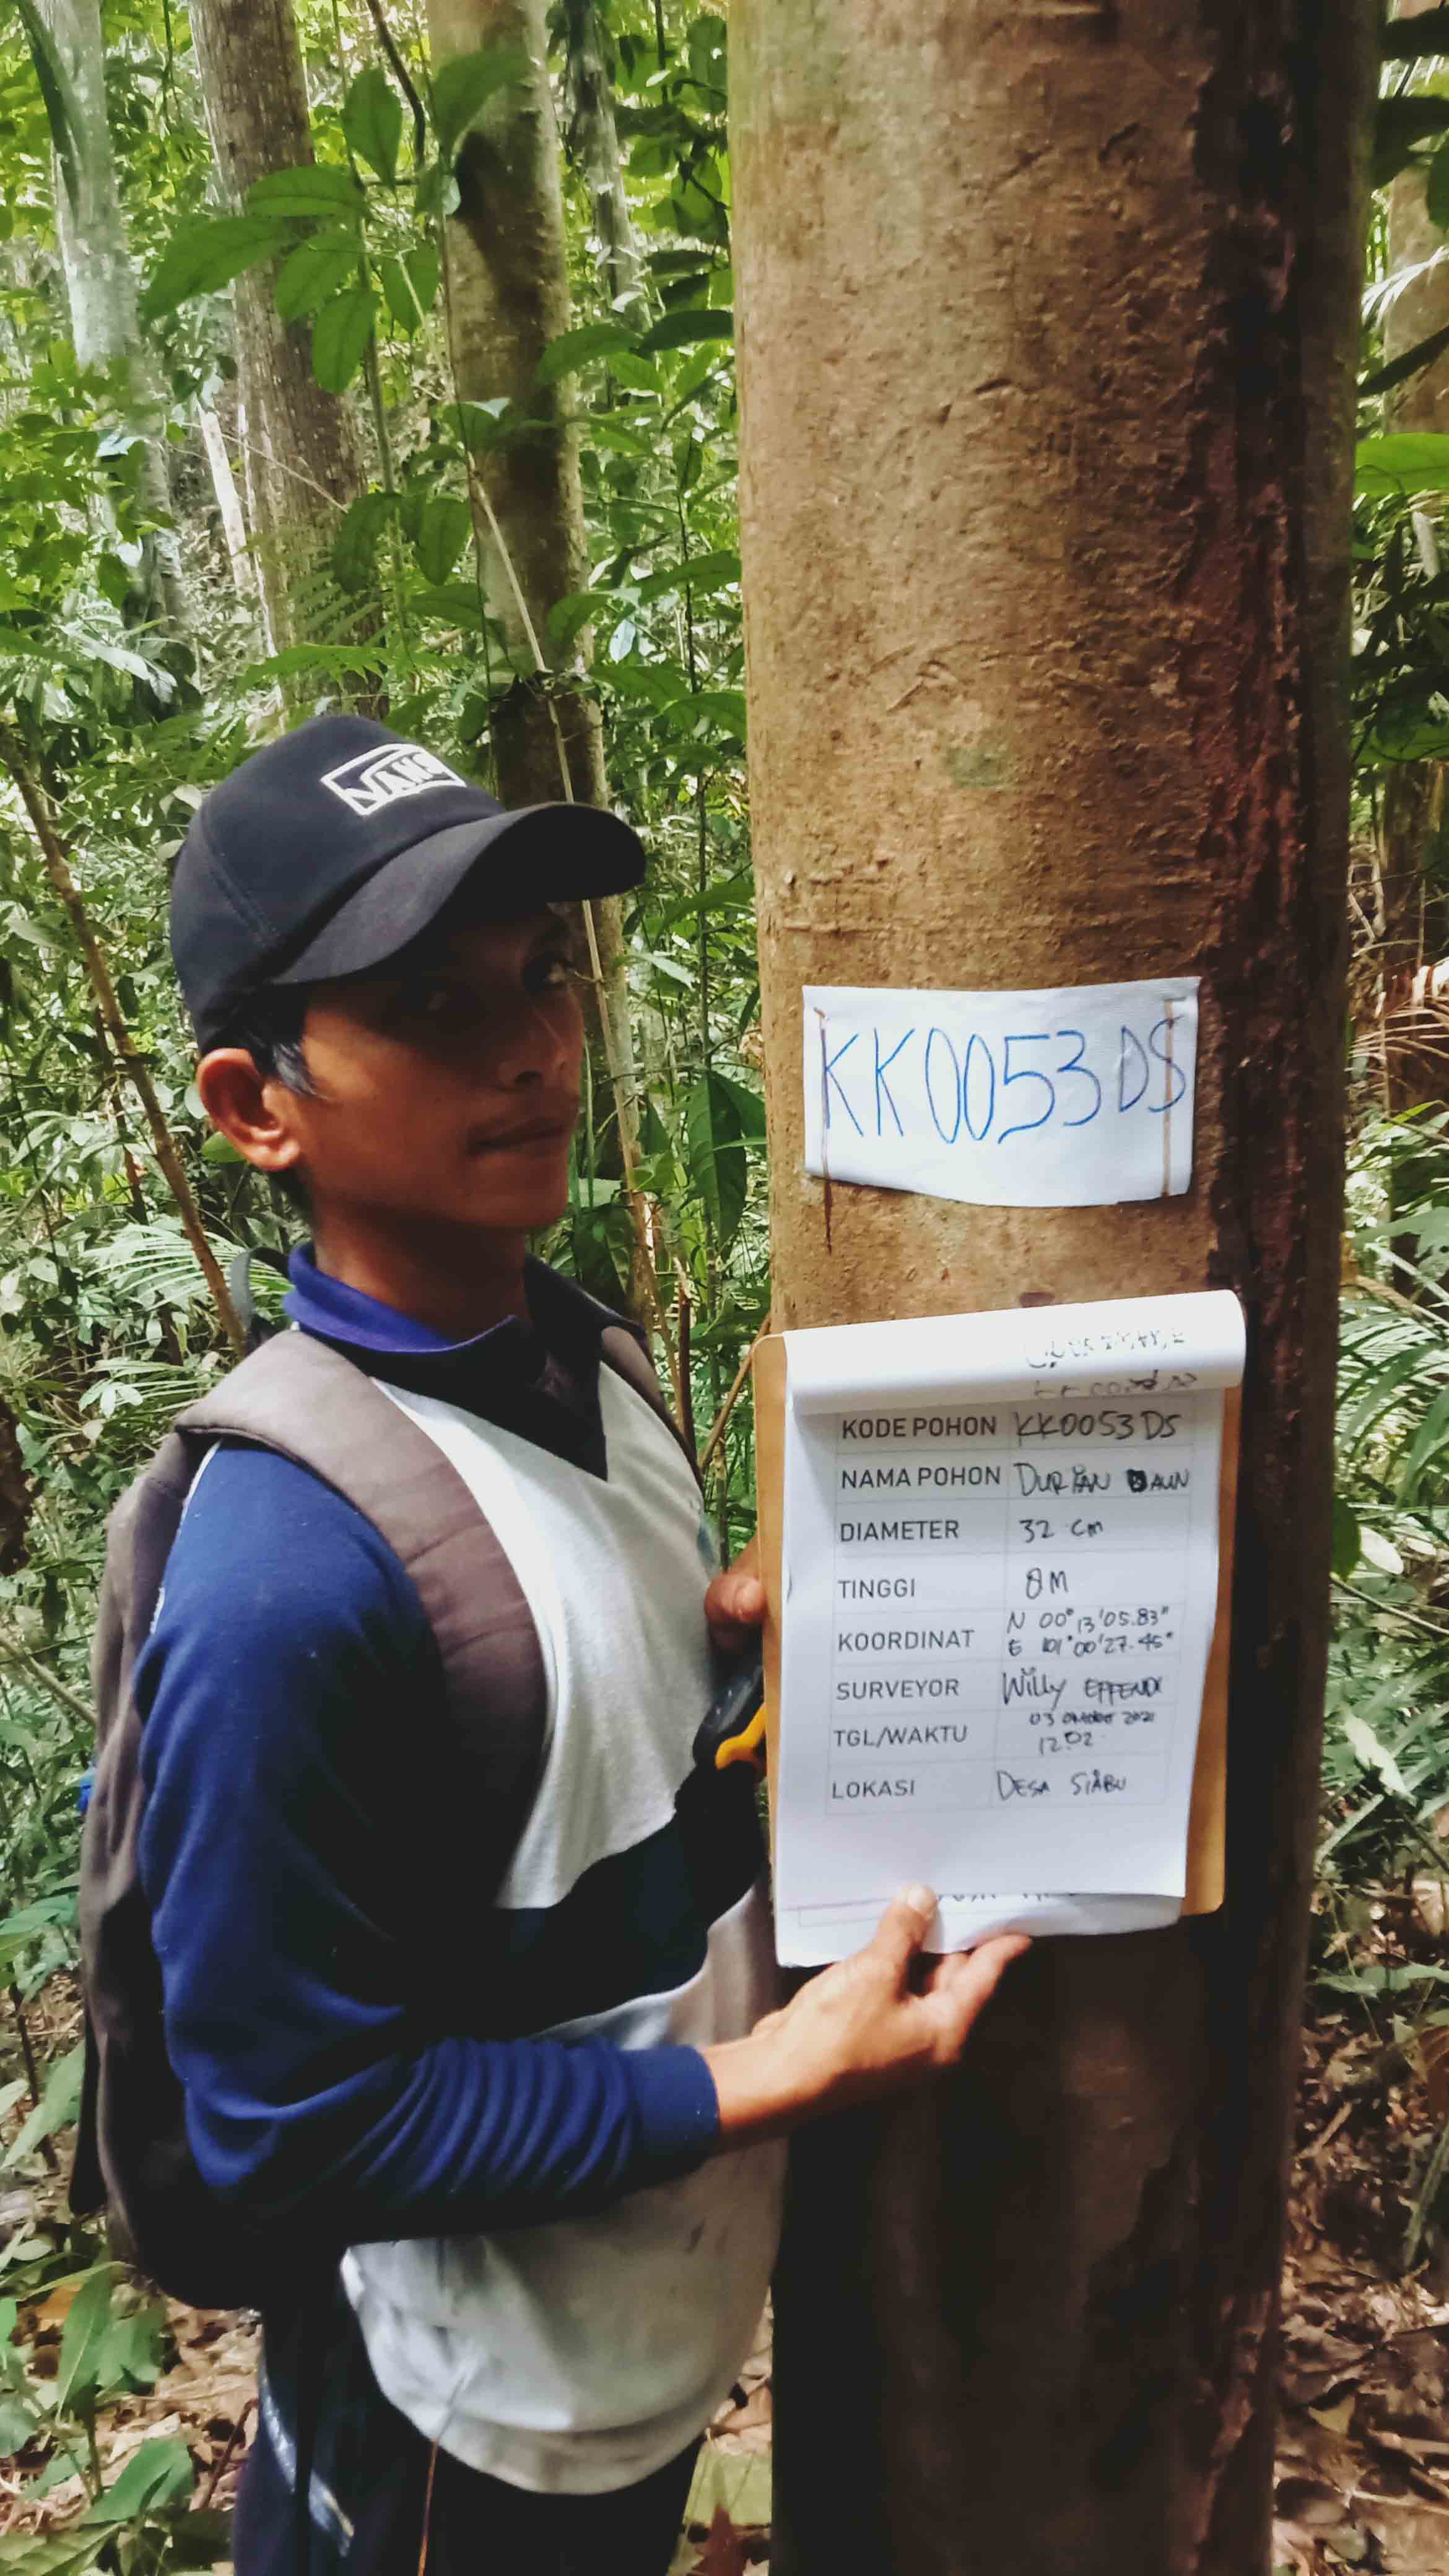 VANS
KK0053DS
KODE POHON KK0053DS
NAMA POHON DURIAN DAUN
DIAMETER 32 cm
TINGGI 8M
KOORDINAT N 00°13'05.83"
E 101°00'27.45"
SURVEYOR Willy EFFENDI
TGL/WAKTU 03 Oktober 2021
12:02
LOKASI DESA SIABU